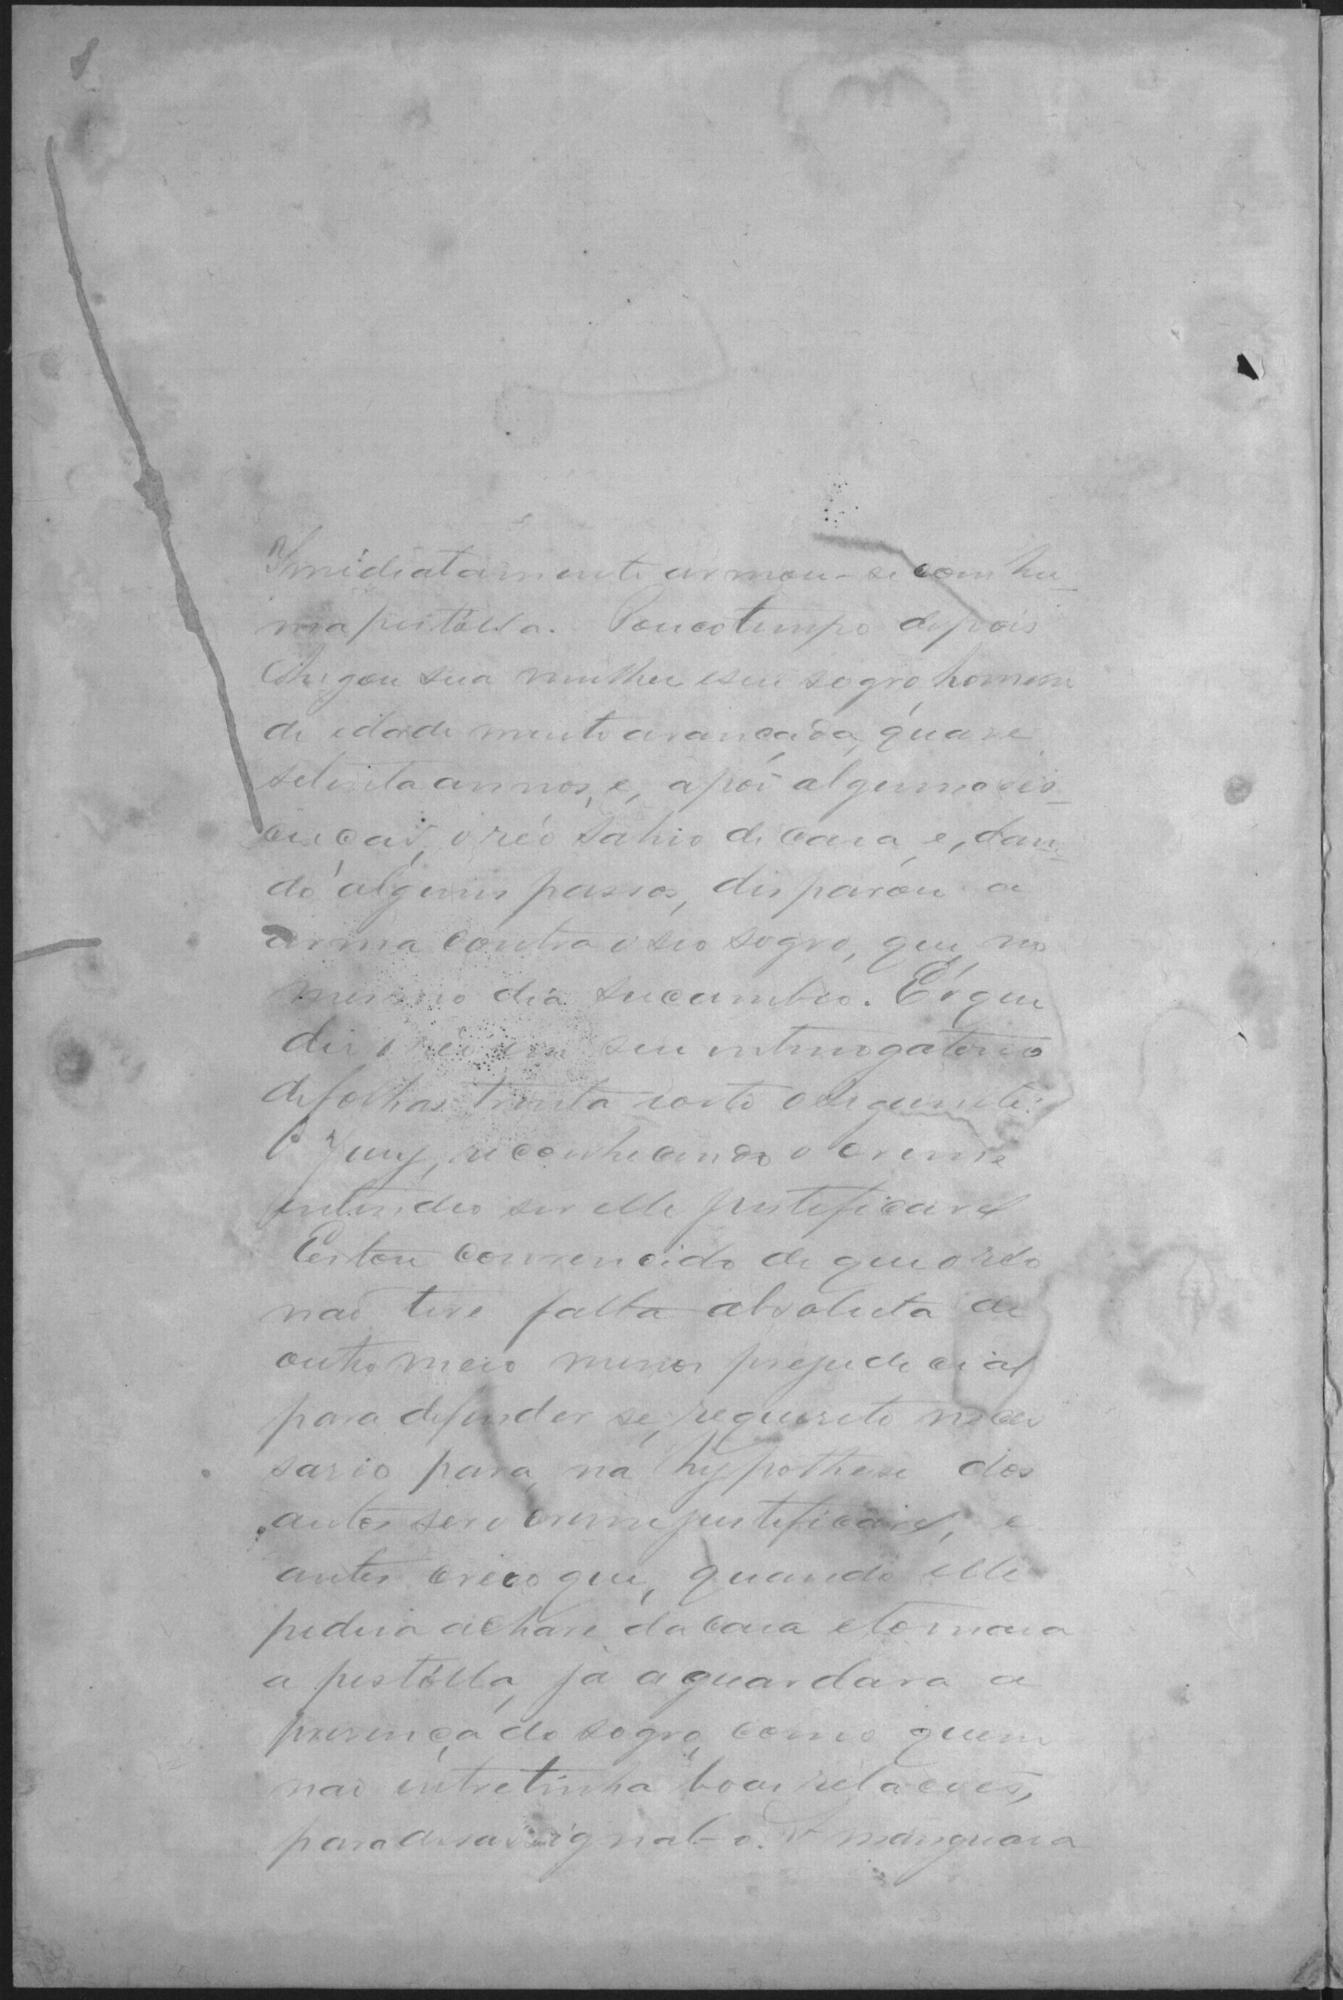 Immidiatamente armou-se com hu-
ma pistólla. Pouco tempo depois
chegou sua mulher e seu sogro, homem
de idade muito avançada, quase
setenta annos, e, após algumas
o réo sahio de casa e, dan-
do alguns passos, disparou a
arma contra o seo sogro, que, no
mesmo dia sucumbio. É o que
diz o réo em seu interrogatorio
de folhas trinta e oito o seguinte:
O Juiz, reconhecendo o crime
entendeo ser elle justificavel
Estou convencido de que o réo
não teve falta absoluta de
outro meio menos prejudicial
para defender-se, requisito neces
sario para, na hypothese dos
autos ser o crime justificavel, e
antes creio que, quando elle
pedira a chave da casa e tomara
a pistólla, já aguardava a
presença do sogro, como quem
não entretinha boas relações,
para A manguara